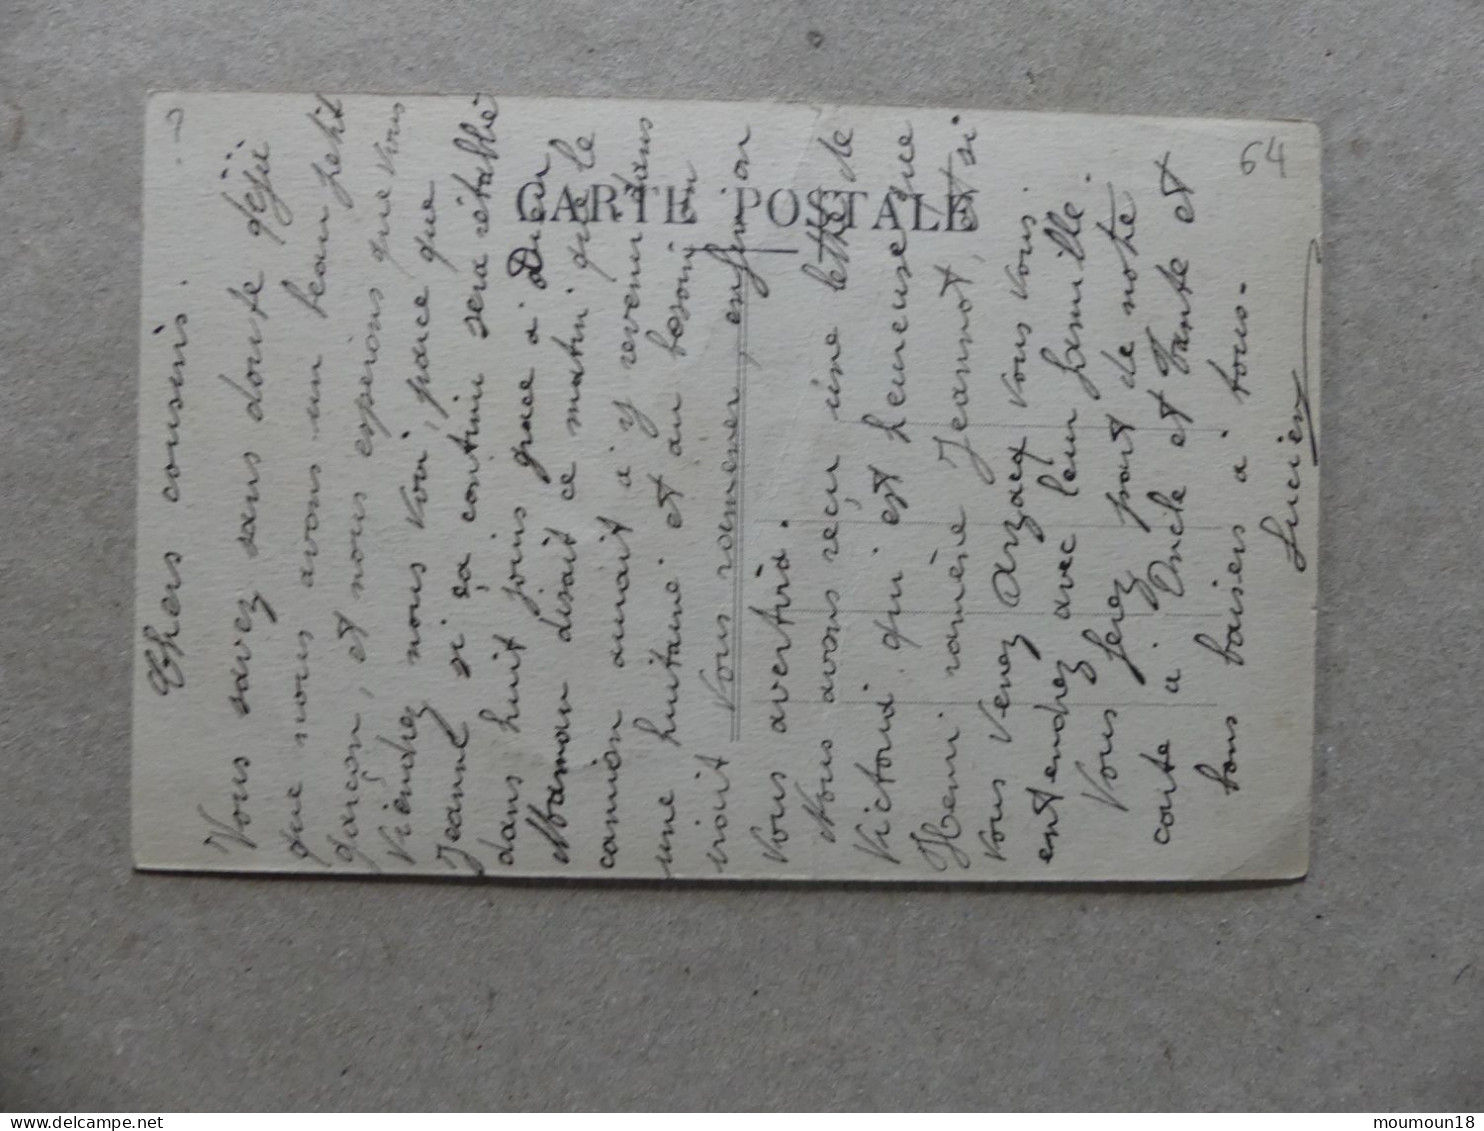 Chers cousins.
Vous savez sans doute déjà
que nous avons un beau petit
garçon, et nous esperons que vous
viendrez nous voir, parce que
Jeanne si ça continu sera rétablie
dans huit jours grace à Dieu
Maman disait ce matin que le
camion aurait à y revenir dans
une huitaine et au besoin on
irait vous ramener, enfin on
vous avertira.
Nous avons reçu une lettre de
Victoria qui est heureuse que
Henri ramène Jeannot, et si
vous venez Arzacq vous vous
entendrez avec leur famille.
Vous ferez part de notre
carte à Oncle et Tante et
bons baisers à tous.
Lucien
CARTE POSTALE
64
moumoun18